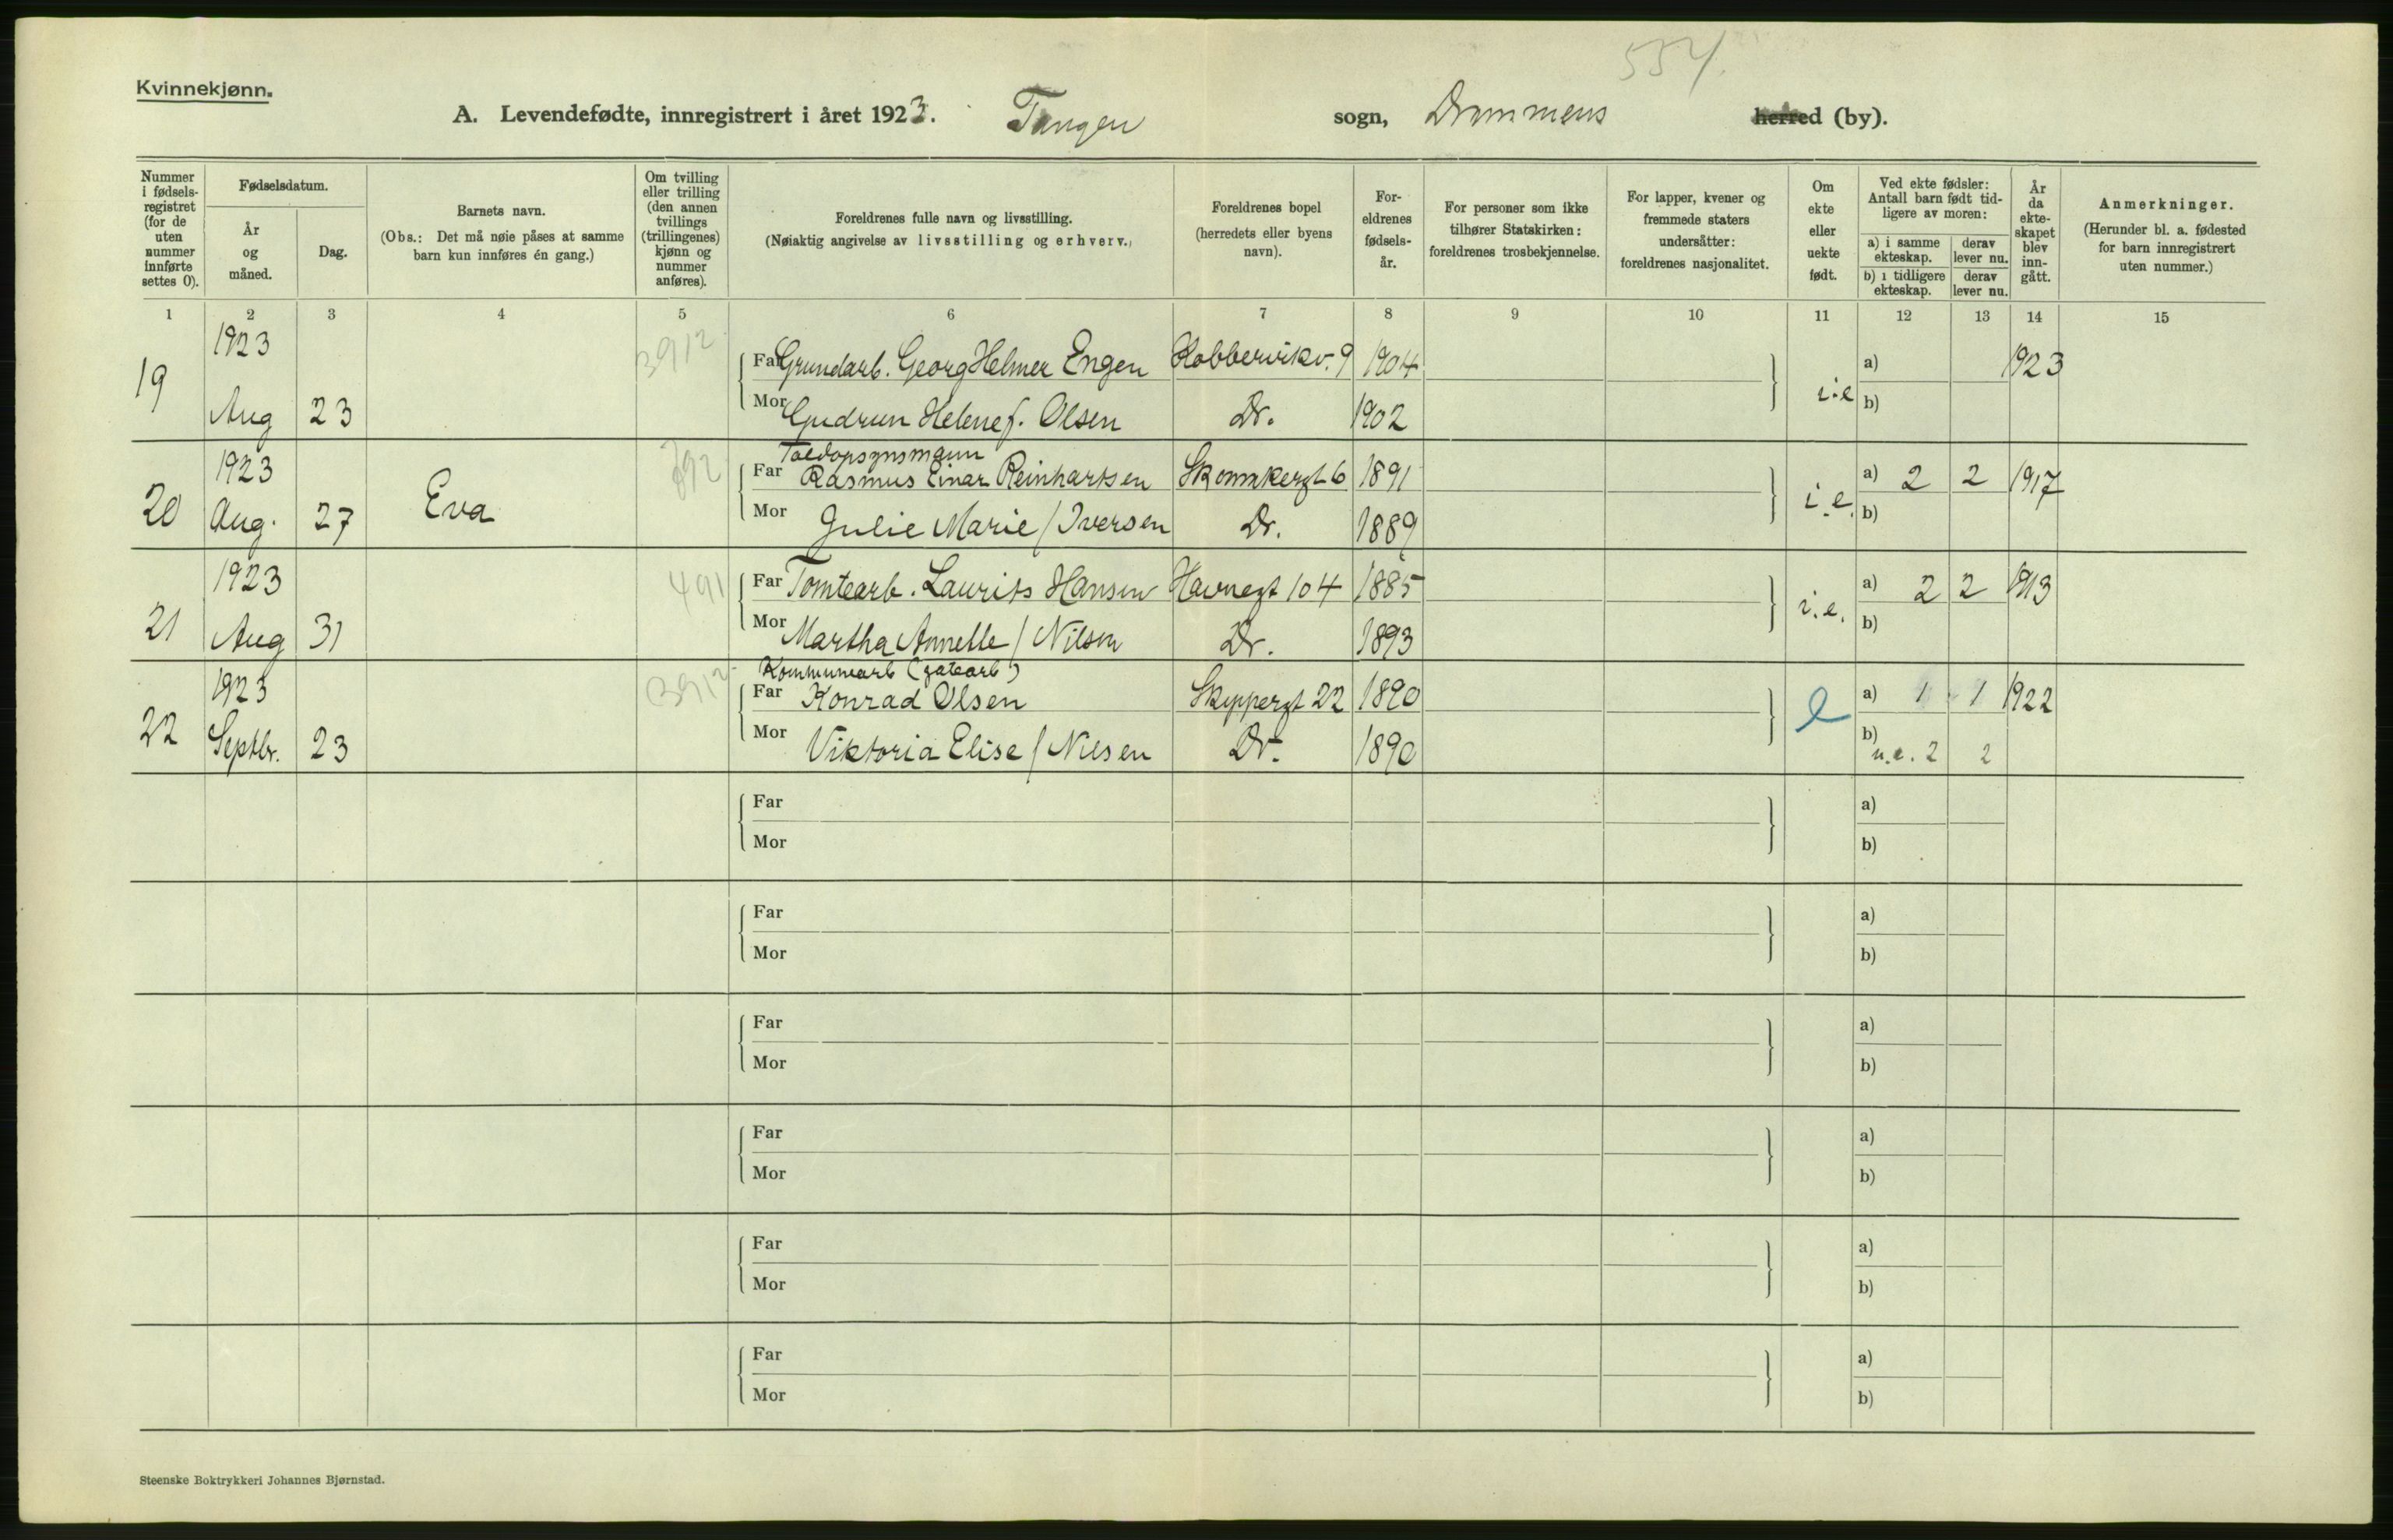 554.
Kvinnekjønn.
A. Levendefødte, innregistrert i året 1923. Tangen sogn, Drammens herred (by).
Nummer i fødsels-registret (for de uten nummer innførte settes 0).
Fødselsdatum.
År og måned.
Dag.
Barnets navn.
(Obs.: Det må nøie påses at samme barn kun innføres én gang.)
Om tvilling eller trilling (den annen tvillings (trillingenes) kjønn og nummer anføres).
Foreldrenes fulle navn og livsstilling.
(Nøiaktig angivelse av livsstilling og erhverv.)
Foreldrenes bopel (herredets eller byens navn).
For-eldrenes fødsels-år.
For personer som ikke tilhører Statskirken: foreldrenes trosbekjennelse.
For lapper, kvener og fremmede staters undersåtter: foreldrenes nasjonalitet.
Om ekte eller uekte født.
Ved ekte fødsler: Antall barn født tid-ligere av moren:
a) i samme ekteskap.
derav lever nu.
b) i tidligere ekteskap.
derav lever nu.
År da ekte-skapet blev inn-gått.
Anmerkninger.
(Herunder bl. a. fødested for barn innregistrert uten nummer.)
1 2 3 4 5 6 7 8 9 10 11 12 13 14 15
19 1923 Aug 23 3912
Far Grundarb. Georg Helmer Engen Kobbervikv. 9 1904 i.e a) 1923
Mor Gudrun Helene f. Olsen Dr. 1902 b)
20 1923 Aug. 27 Eva 392
Toldopsynsmann
Far Rasmus Einar Reinhartsen Skomakergt 6 1891 i.e. a) 2 2 1917
Mor Julie Marie / Iversen Dr. 1889 b)
21 1923 Aug 31 491
Far Tomtearb. Laurits Hansen Havnegt 104 1885 i.e. a) 2 2 1913
Mor Martha Annette / Nilsen Dr. 1893 b)
22 1923 Septbr. 23 3912
Kommunearb (gatearb)
Far Konrad Olsen Skippergt 22 1890 e a) 1 1 1922
Mor Viktoria Elise / Nilsen Dr. 1890 b) u.e. 2 2
Far a)
Mor b)
Far a)
Mor b)
Far a)
Mor b)
Far a)
Mor b)
Far a)
Mor b)
Far a)
Mor b)
Steenske Boktrykkeri Johannes Bjørnstad.